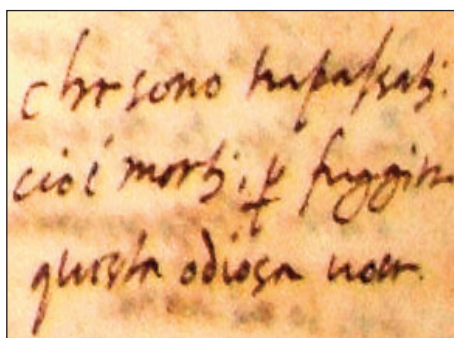 che sono trapassati:
cioè morti, ꝑ fuggire
questa odiosa uoce.